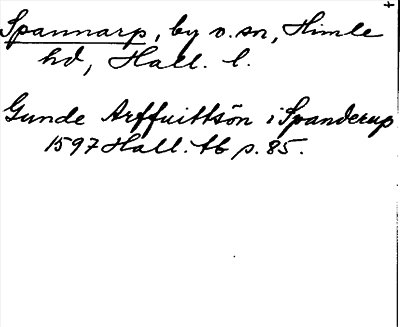 Spannarp, by o. sn, Himle
hd, Hall. l.
Gunde Arffuittsön i Spanderup
1597 Hall. tb p. 85.